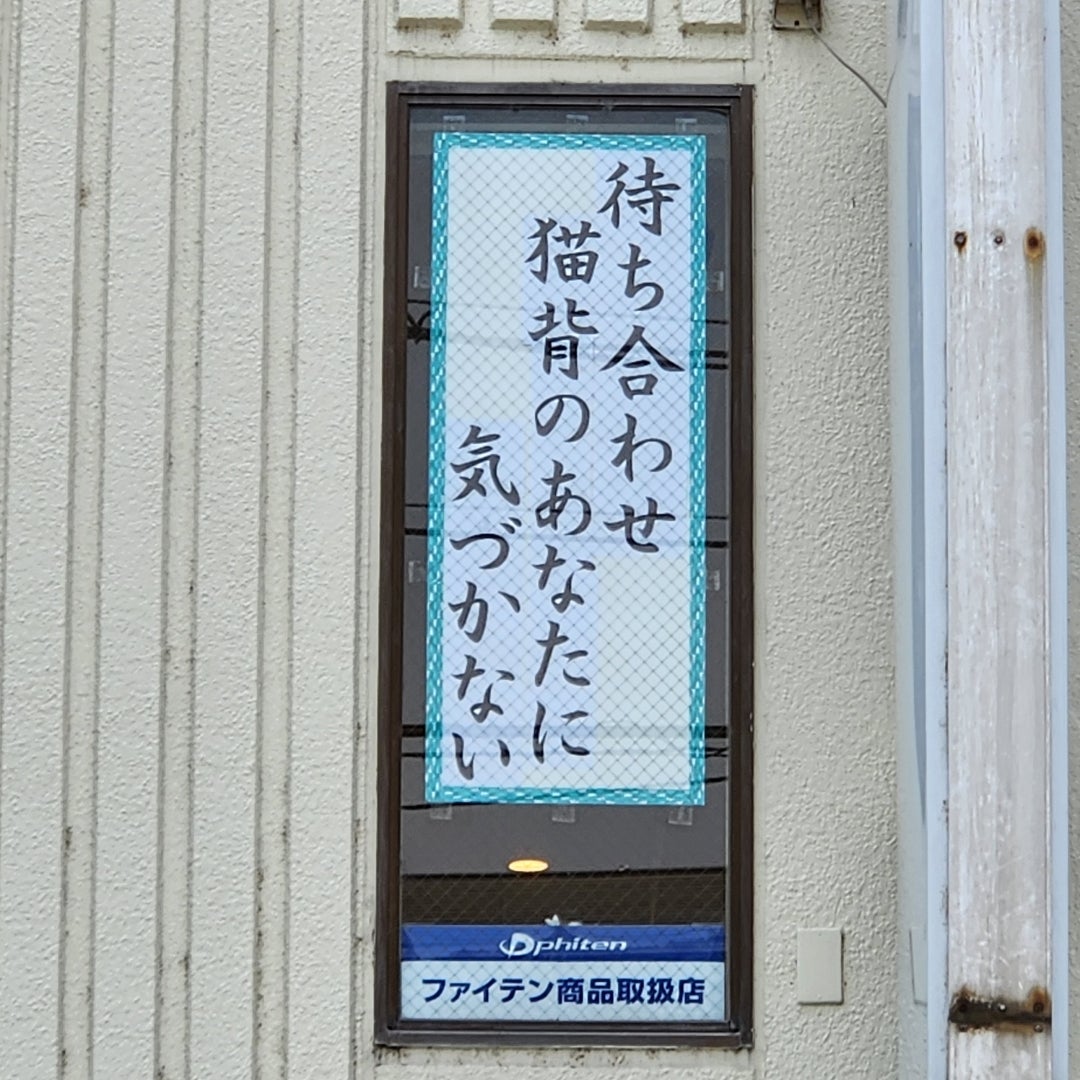 待ち合わせ
猫背のあなたに
気づかない
phiten
ファイテン商品取扱店